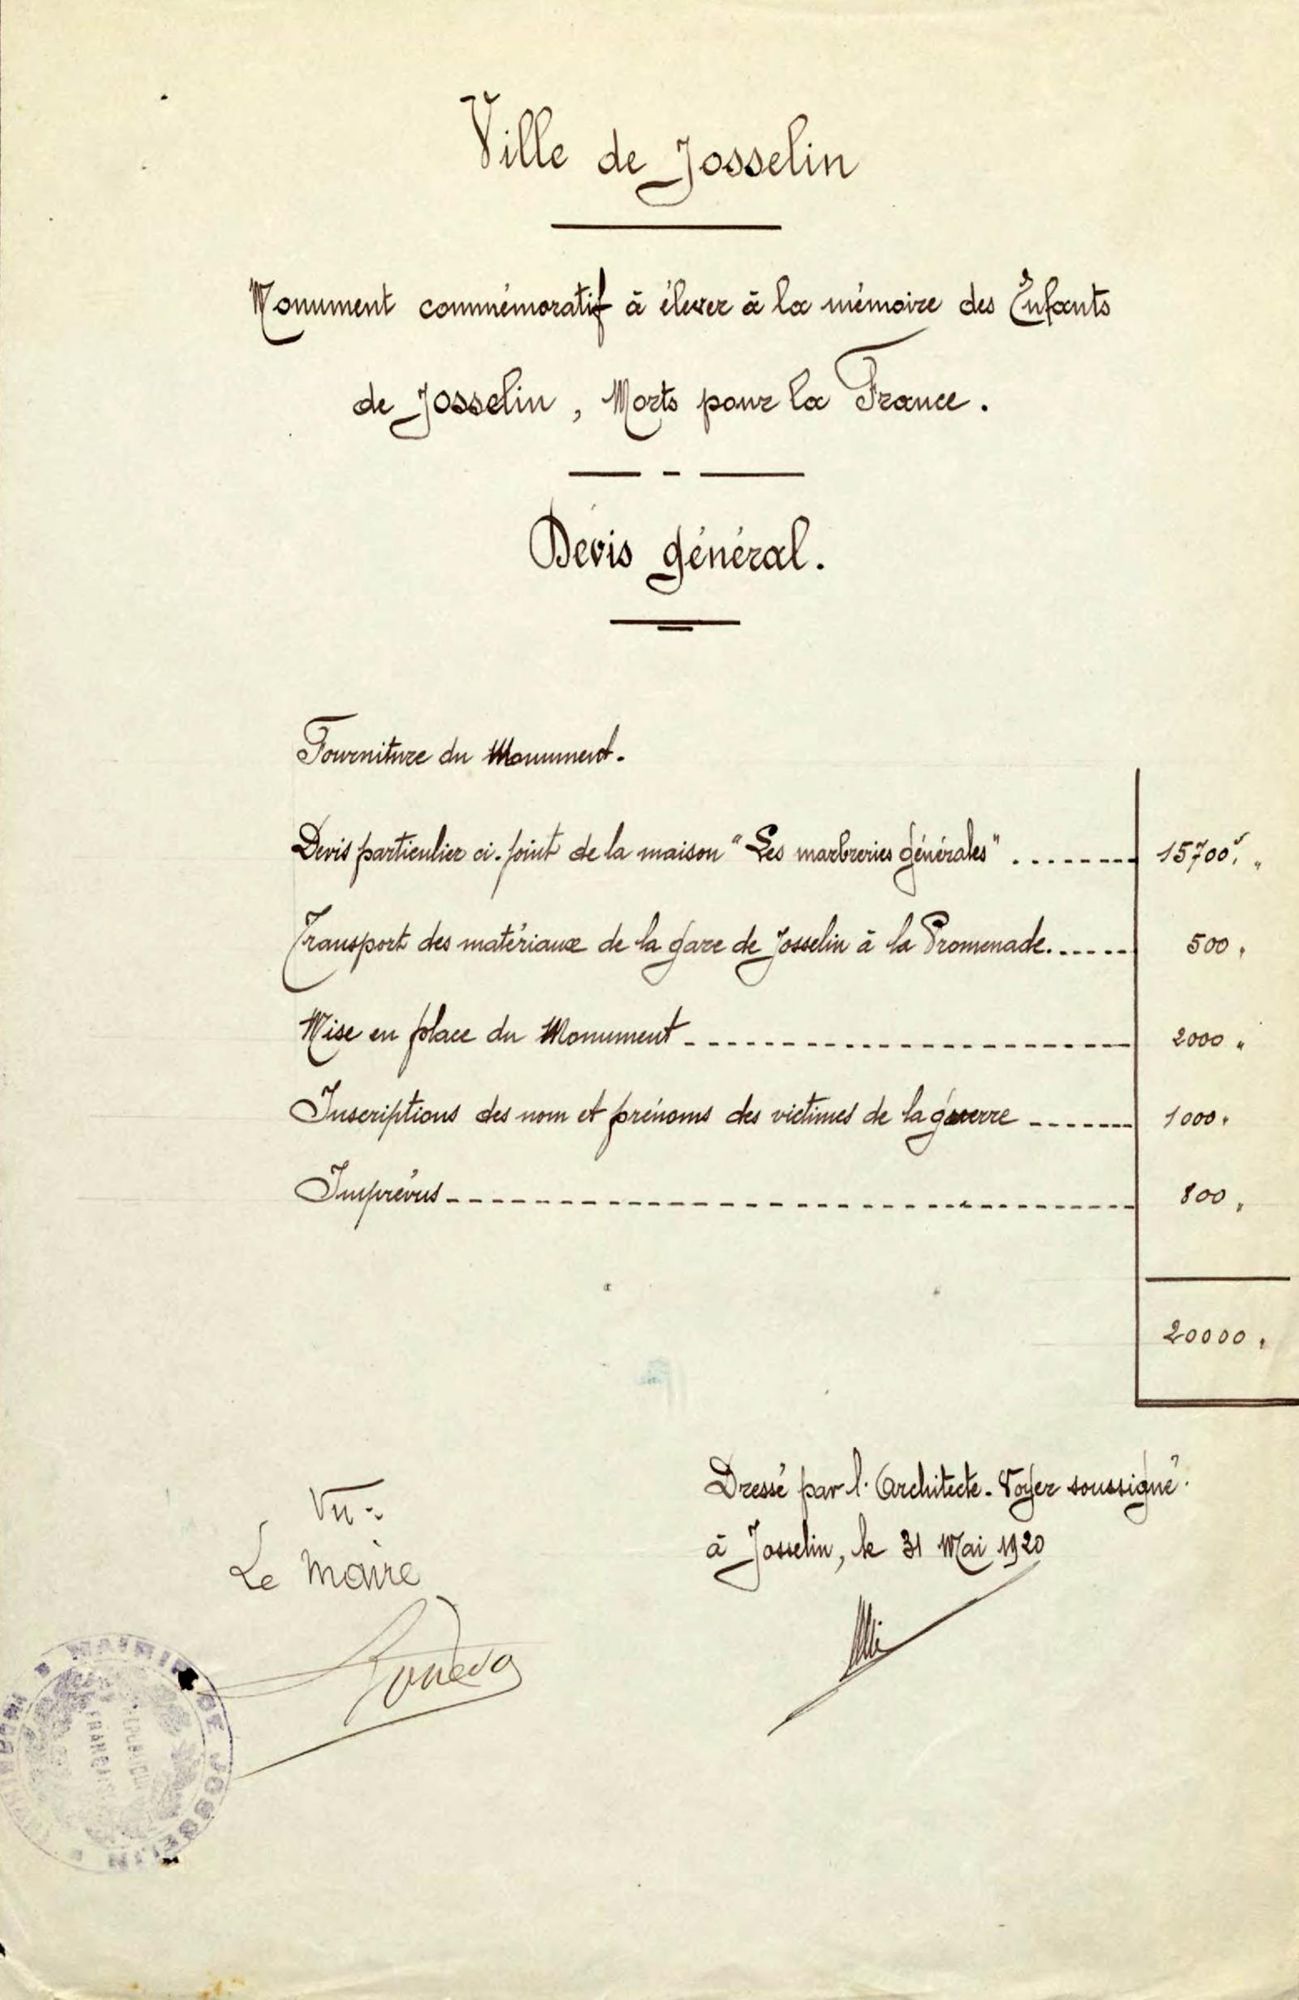 Ville de Josselin
Monument commémoratif à élever à la mémoire des Enfants
de Josselin, Morts pour la France.
Devis général.
Fourniture du Monument.
Devis particulier ci-joint de la maison "Les marbreries générales" ........ 15700f. "
Transport des matériaux de la gare de Josselin à la Promenade. ...... 500 "
Mise en place du Monument ........ 2000 "
Inscriptions des nom et prénoms des victimes de la guerre ....... 1000 "
Imprévus ........ 800 "
20000 "
Dressé par l'Architecte-Voyer soussigné
à Josselin, le 31 Mai 1920
Vu :
Le Maire
MAIRIE DE JOSSELIN
(MORBIHAN)
RÉPUBLIQUE
FRANÇAISE